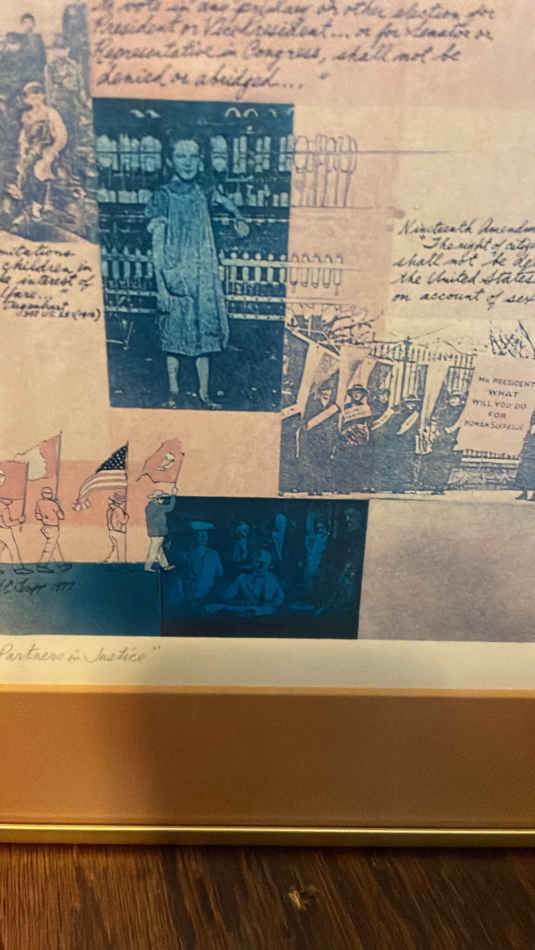 to vote in any primary or other election for
President or Vice President... or for Senator or
Representative in Congress, shall not be
denied or abridged..."
Nineteenth Amendm
The right of citize
shall not be de
the United States
on account of sex
mitations
children in
he interest of
fare...
Dagenhart
MR. PRESIDENT
WHAT
WILL YOU DO
FOR
WOMAN SUFFRAGE
1977
Partners in Justice"